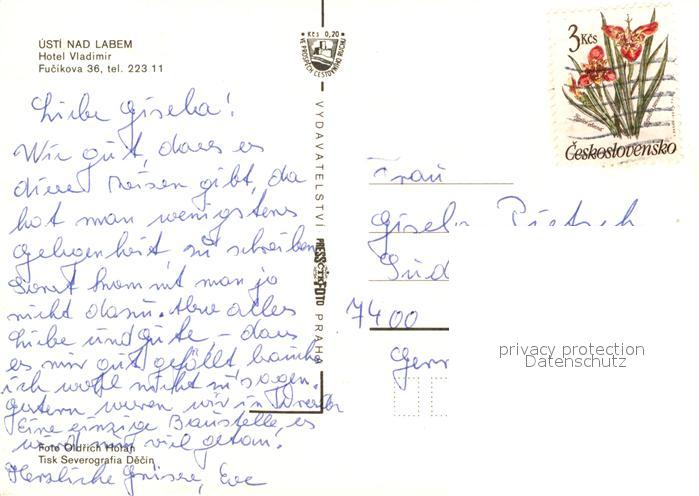 ÚSTÍ NAD LABEM
Hotel Vladimir
Fučíkova 36, tel. 223 11
Liebe Gisela!
Wie gut, dass es
diese Reisen gibt, da
hat man wenigstens
Gelegenheit, zu schreiben
Sonst kommt man ja
nicht dazu. Also alles
Liebe und Gute – dass
es mir gut gefällt, brauche
ich wohl nicht zu sagen.
Gestern waren wir in
Eine einzige Baustelle, es
wird viel getan!
Herzliche Grüsse, Eve
Foto Oldřich Horan
Tisk Severografia Děčín
Kčs 0,20
VE PROSPĚCH CESTOVNÍHO RUCHU
VYDAVATELSTVÍ PRESSFOTO PRAHA
ČTK
3 Kčs
Československo
Frau
Gisela Pietsch
Süd
7400
Gerr
privacy protection
Datenschutz